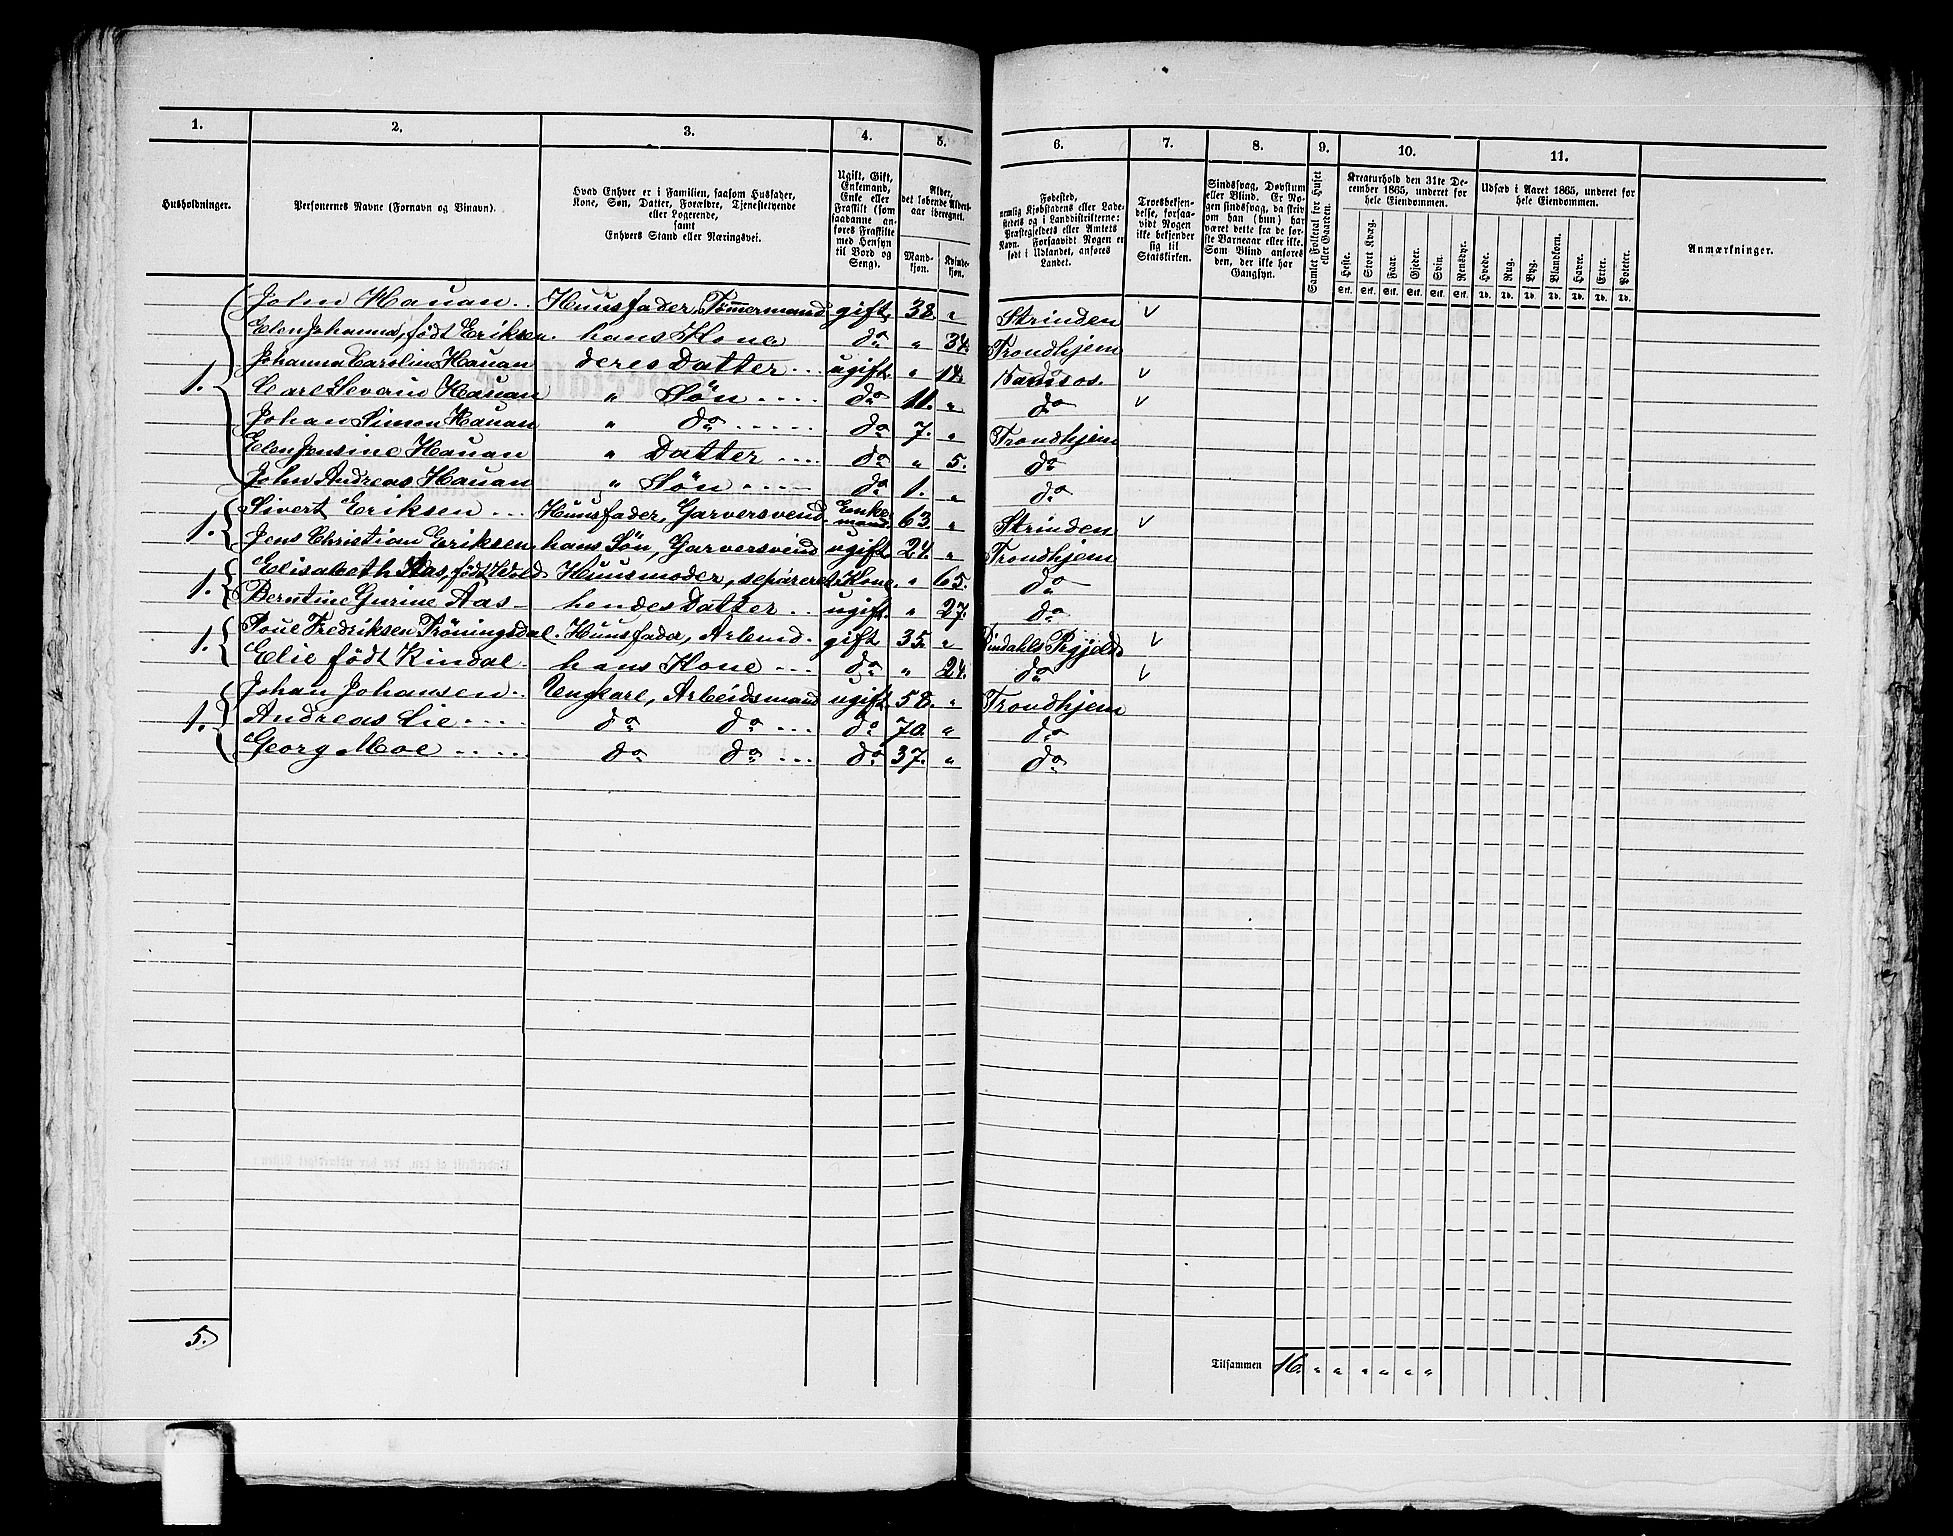 1. 2. 3. 4. 5. 6. 7. 8. 9. 10. 11.
Husholdninger.
Personernes Navne (Fornavn og Vinavn).
Hvad Enhver er i Familien, saasom Husfader,
Kone, Søn, Datter, Forældre, Tjenestetyende
eller Logerende,
samt
Enhvers Stand eller Næringsvei.
Ugift, Gift,
Enkemand,
Enke eller
Fraskilt (som
saadanne an-
føres Fraskilte
med Hensyn
til Bord og
Seng).
Alder,
det løbende Alders-
aar iberegnet.
Mand-
kjøn.
Kvinde-
kjøn.
Fødested,
nemlig Kjøbstadens eller Lade-
stedets og i Landdistrikterne:
Præstegjeldets eller Amtets
Navn. Forsaavidt Nogen er
født i Udlandet, anføres
Landet.
Troesbekjen-
delse, forsaa-
vidt Nogen
ikke bekjender
sig til
Statskirken.
Sindssvag, Døvstum
eller Blind. Er No-
gen sindssvag, da skriv
om han (hun) har
været dette fra de før-
ste Barneaar eller ikke.
Som Blind anføres
den, der ikke har
Gangsyn.
Samlet Folketal for Huset
eller Gaarden.
Kreaturhold den 31te De-
cember 1865, underet for
hele Eiendommen.
Heste. Stort Kvæg. Faar. Gjeder. Svin. Rensdyr.
Stk. Stk. Stk. Stk. Stk. Stk.
Udsæd i Aaret 1865, underet for
hele Eiendommen.
Hvede. Rug. Byg. Blandkorn. Havre. Erter. Poteter.
Td. Td. Td. Td. Td. Td. Td.
Anmærkninger.
John Hauan .. Huusfader, Tømmermand gift 38. " Strinden v
Elen Johanna, født Eriksen. hans Kone do " 34. Trondhjem
Johanna Caroline Hauan deres Datter ... ugift " 14. Namsos. v
1. Carl Severin Hauan " Søn .... do 11. " do v
Johan Simon Hauan " do ..... do 7. " Trondhjem
Elen Jensine Hauan " Datter .... do " 5. do
John Andreas Hauan " Søn .... do 1. " do
Sivert Eriksen ... Huusfader, Garversvend Enke-mand. 63. " Strinden v
1. Jens Christian Eriksen. hans Søn, Garversvend ugift 24. " Trondhjem
Elisabeth Aas, født Wold Huusmoder, separeret Kone. " 65. do
1. Berntine Gurine Aas - hendes Datter .. ugift " 27. do
Poul Fredriksen Trøningsdal. Huusfader, Arbmd. gift 35. " Rindahls Prgjeld v
1. Elie født Rindal. hans Kone ... do " 24. do v
Johan Johansen .. Ungkarl, Arbeidsmand ugift 58. " Trondhjem
1. Andreas Lie .... do do ... do 70. " do
Georg Moe ..... do do ... do 37. " do
5.
Tilsammen 16. " " " " " "